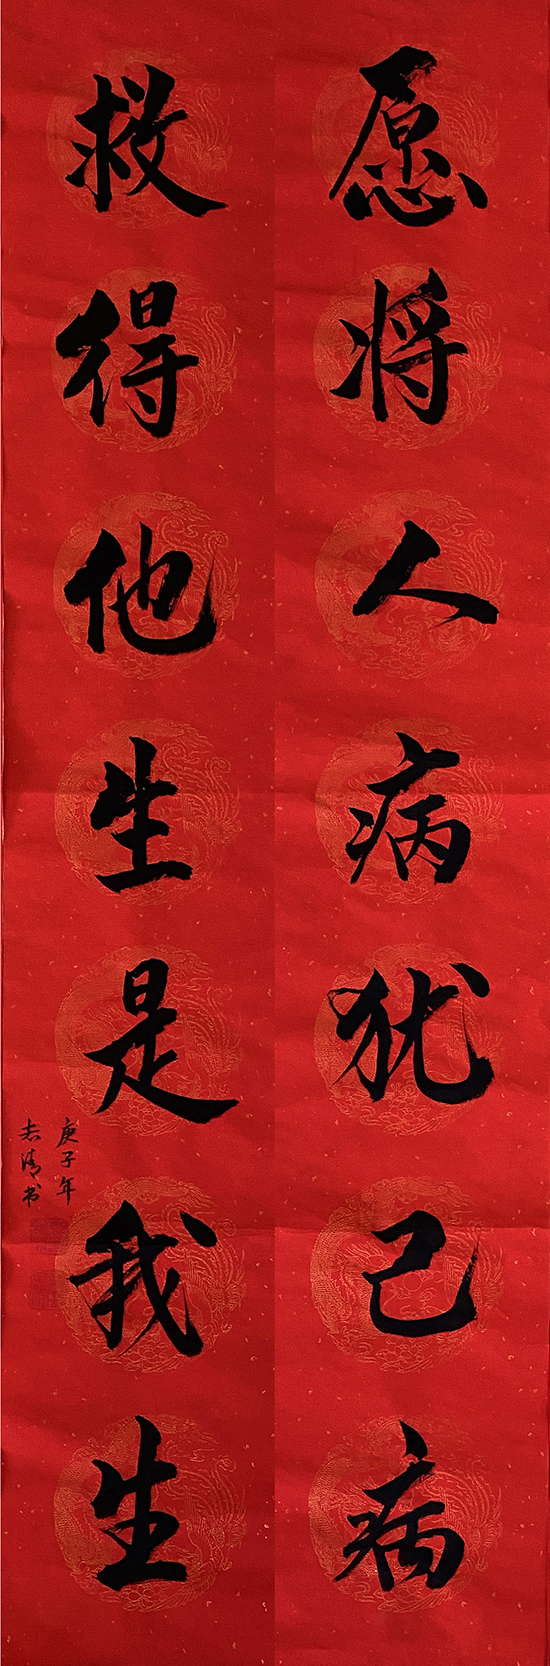 愿将人病犹己病
救得他生是我生
庚子年
志清书